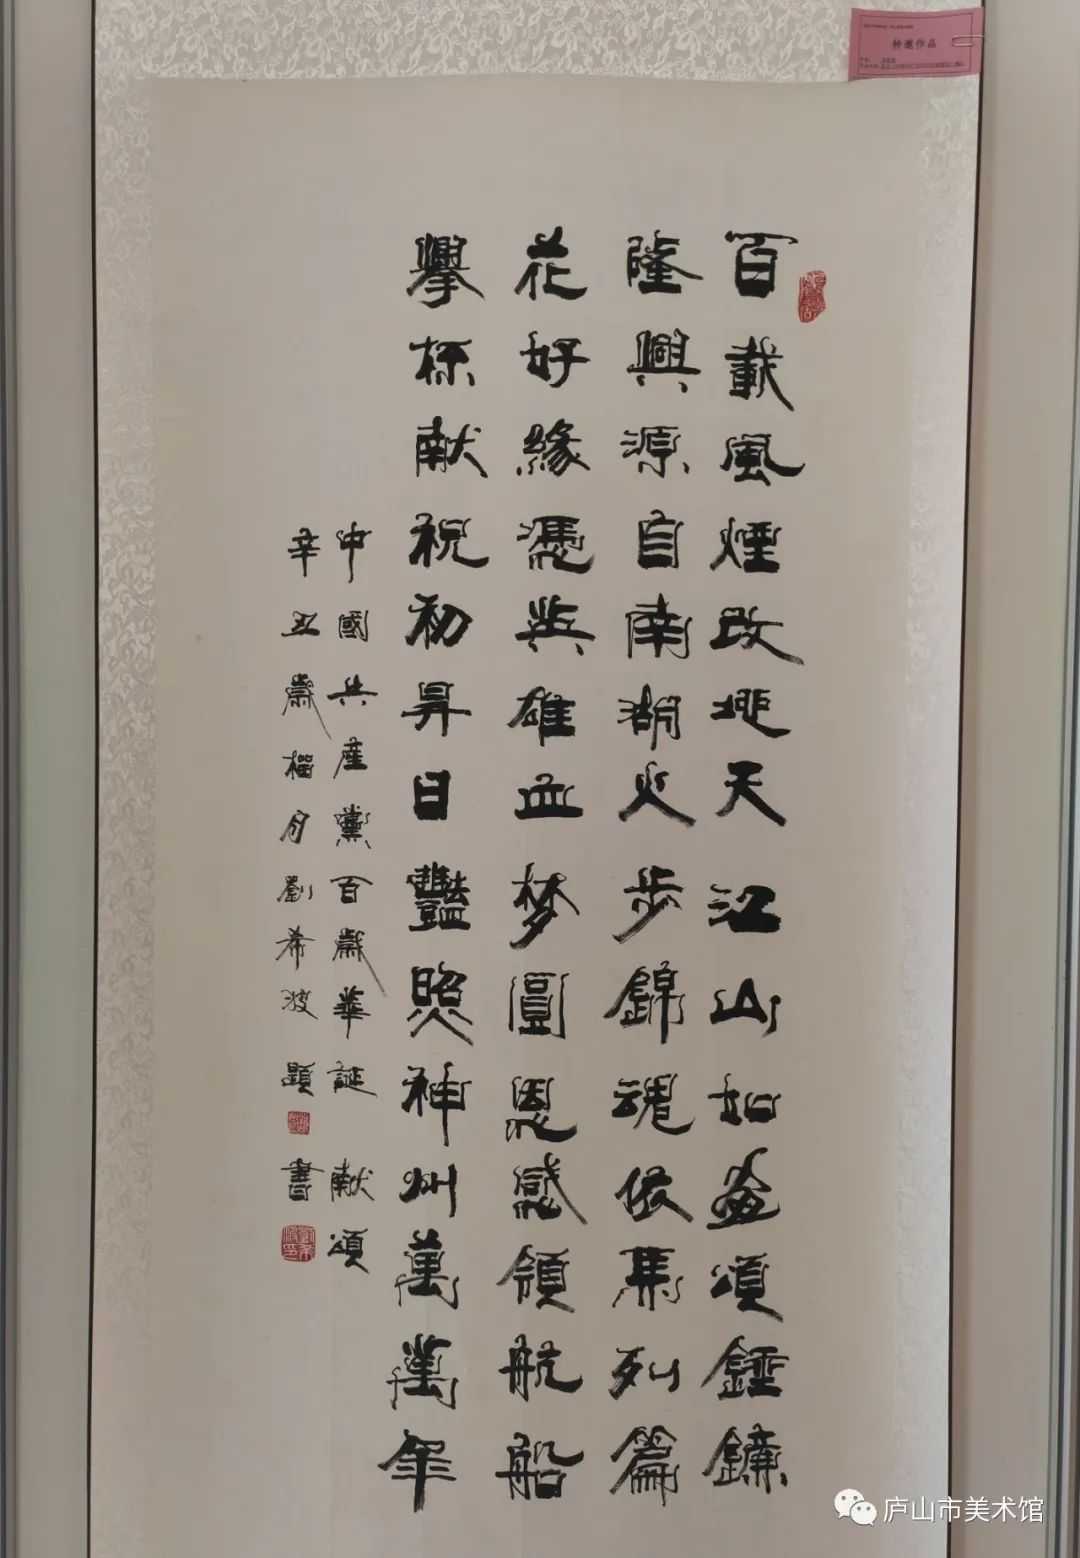 特邀作品
百載風煙改地天江山如畫頌錘鐮
隆興源自南湖火步錦魂依馬列篇
花好緣憑英雄血梦圓恩感領航船
舉杯献祝初昇日豔照神州萬萬年
中國共産黨百歲華誕 献頌
辛丑歲榴月劉希波題書
庐山市美术馆